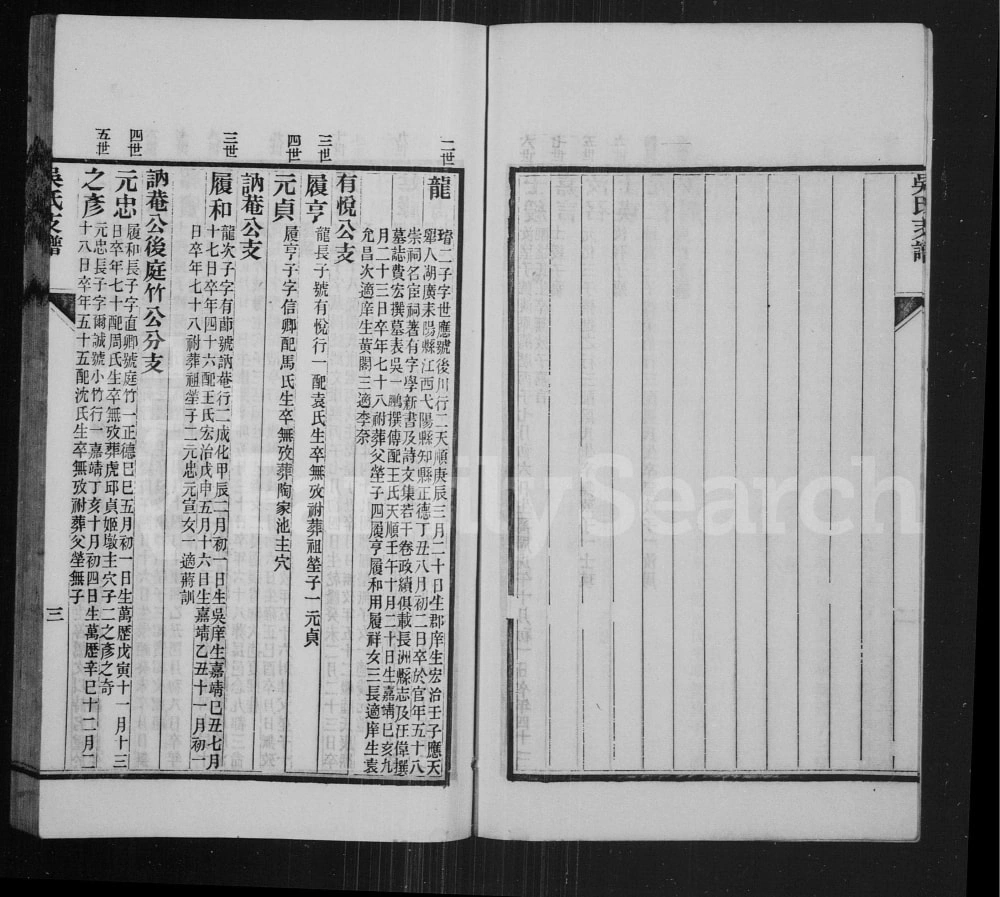 吳氏支譜
二世
龍
璿二子字世應號後川行二天順庚辰三月二十日生郡庠生宏治壬子應天
舉人湖廣耒陽縣江西弋陽縣知縣正德丁丑八月初二日卒於官年五十八
崇祠名宦祠著有字學新書及詩文集若干卷政績俱載長洲縣志及汪偉撰
墓誌費宏撰墓表吳一鵬撰傳配王氏天順壬午十月二十日生嘉靖己亥九
月二十三日卒年七十八祔葬父塋子四履亨履和用履祥女三長適庠生袁
允昌次適庠生黃閣三適李奈
有悅公支
三世
履亨
龍長子號有悅行一配袁氏生卒無攷祔葬祖塋子一元貞
四世
元貞
履亨子字信卿配馬氏生卒無攷葬陶家池主穴
訥菴公支
三世
履和
龍次子字有莭號訥菴行二成化甲辰二月初一日生吳庠生嘉靖己丑七月
十七日卒年四十六配王氏宏治戊申五月十六日生嘉靖乙丑十一月初一
日卒年七十八祔葬祖塋子二元忠元宣女一適蔣訓
訥菴公後庭竹公分支
四世
元忠
履和長子字直卿號庭竹一正德己巳五月初一日生萬歷戊寅十一月十三
日卒年七十配周氏生卒無攷葬虎邱貞姬墩主穴子二之彥之奇
五世
之彥
元忠長子字爾誠號小竹行一嘉靖丁亥十月初四日生萬歷辛巳十二月二
十八日卒年五十五配沈氏生卒無攷祔葬父塋無子
吳氏支譜
三